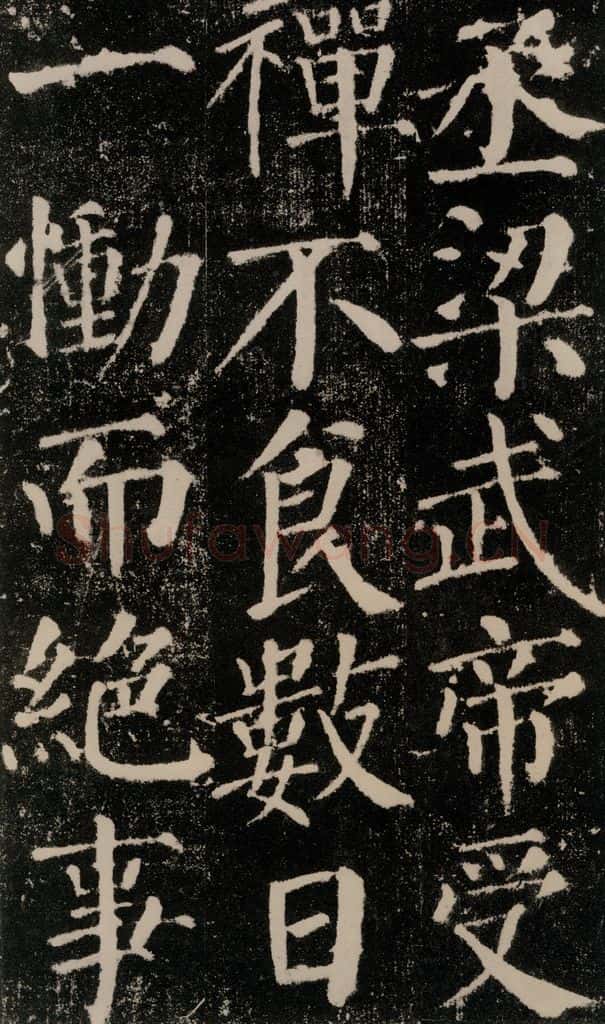 丞梁武帝受
禪不食數日
一慟而絕事
Shufawang.CN